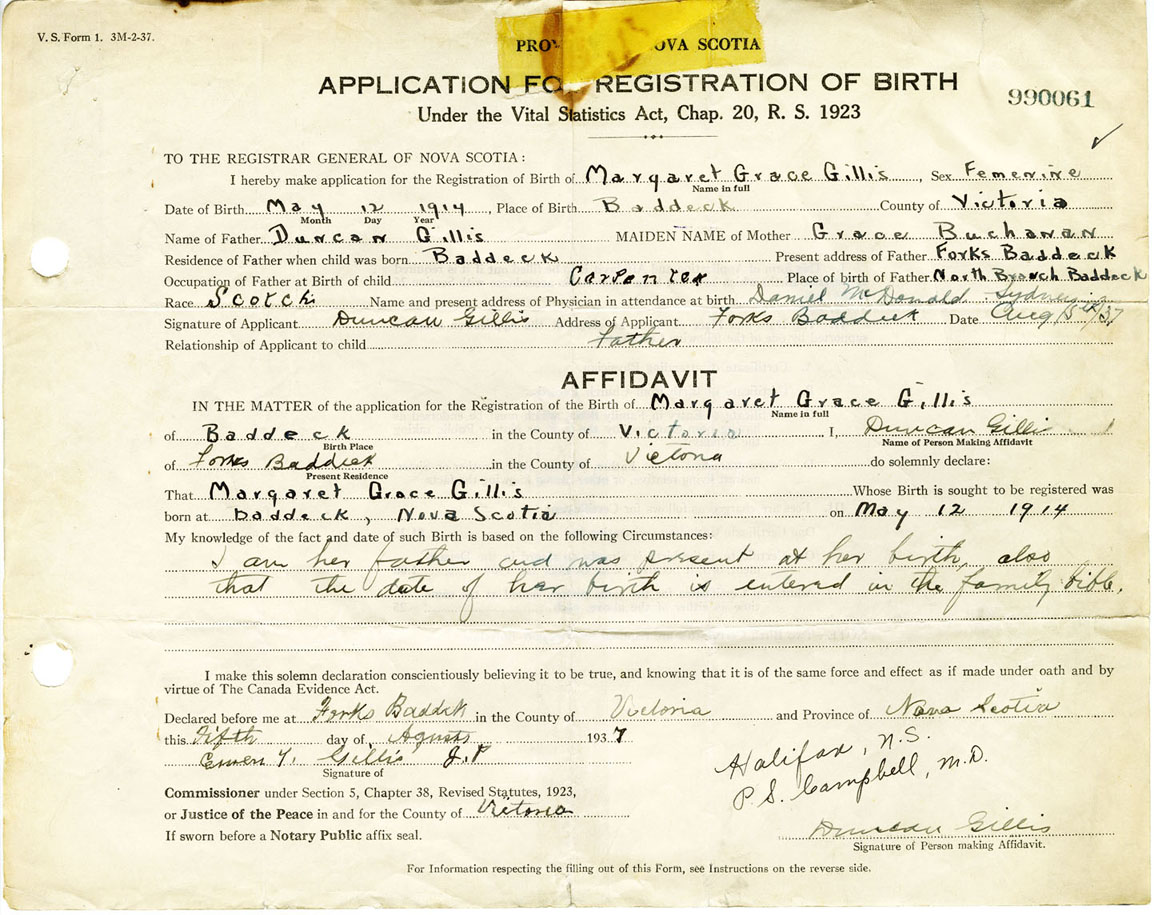 V. S. Form 1. 3M-2-37.
PROV OVA SCOTIA
APPLICATION FO REGISTRATION OF BIRTH
990061
Under the Vital Statistics Act, Chap. 20, R. S. 1923
TO THE REGISTRAR GENERAL OF NOVA SCOTIA:
I hereby make application for the Registration of Birth of Margaret Grace Gillis, Sex Femenine
Name in full
Date of Birth May 12 1914, Place of Birth Baddeck County of Victoria
Month Day Year
Name of Father Duncan Gillis MAIDEN NAME of Mother Grace Buchanan
Residence of Father when child was born Baddeck Present address of Father Forks Baddeck
Occupation of Father at Birth of child Carpenter Place of birth of Father North Branch Baddeck
Race Scotch Name and present address of Physician in attendance at birth Daniel McDonald Sydney
Signature of Applicant Duncan Gillis Address of Applicant Forks Baddeck Date Aug 5th/37
Relationship of Applicant to child Father
AFFIDAVIT
IN THE MATTER of the application for the Registration of the Birth of Margaret Grace Gillis
Name in full
of Baddeck in the County of Victoria I, Duncan Gillis
Birth Place Name of Person Making Affidavit
of Forks Baddeck in the County of Victoria do solemnly declare:
Present Residence
That Margaret Grace Gillis Whose Birth is sought to be registered was
born at Baddeck, Nova Scotia on May 12 1914
My knowledge of the fact and date of such Birth is based on the following Circumstances:
I am her father and was present at her birth, also
that the date of her birth is entered in the family bible.
I make this solemn declaration conscientiously believing it to be true, and knowing that it is of the same force and effect as if made under oath and by
virtue of The Canada Evidence Act.
Declared before me at Forks Baddek in the County of Victoria and Province of Nova Scotia
this Fifth day of Agusts 1937
Gillis J.P
Signature of
Halifax, N.S.
P.S. Campbell, M.D.
Commissioner under Section 5, Chapter 38, Revised Statutes, 1923,
or Justice of the Peace in and for the County of Victoria
If sworn before a Notary Public affix seal.
Duncan Gillis
Signature of Person making Affidavit.
For Information respecting the filling out of this Form, see Instructions on the reverse side.